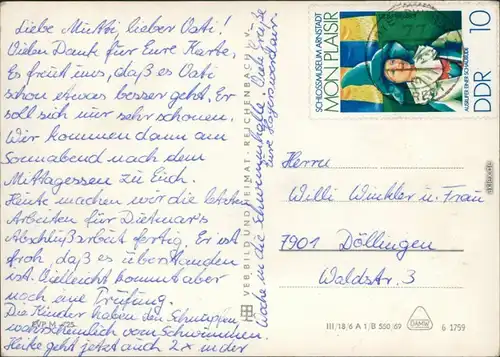 Liebe Mutti, lieber Vati!
Vielen Dank für Eure Karte,
Es freut uns, daß es Vati
schon etwas besser geht. Er
soll sich nur sehr schonen.
Wir kommen dann am
Sonnabend nach dem
Mittagessen zu Euch.
Heute machen wir die letzten
Arbeiten für Dietmar's
Abschlußarbeit fertig. Er ist
froh, daß es überstanden
ist. Vielleicht kommt aber
noch eine Prüfung.
Die Kinder haben den Schnupfen
wahrscheinlich vom Schwimmen.
Heike geht jetzt auch 2x in der
Woche in die Schwimmhalle. Viele Grüße
Eure
EVP M -,25
VEB BILD UND HEIMAT · REICHENBACH i. V.
SCHLOSSMUSEUM ARNSTADT
MON PLAISIR
AUSRUFER EINER SCHAUBUDE
DDR 10
Herrn
Willi Winkler u. Frau
7901 Döllingen
Waldstr. 3
III/18/6 A 1/B 550/69
DAMW
6 1759